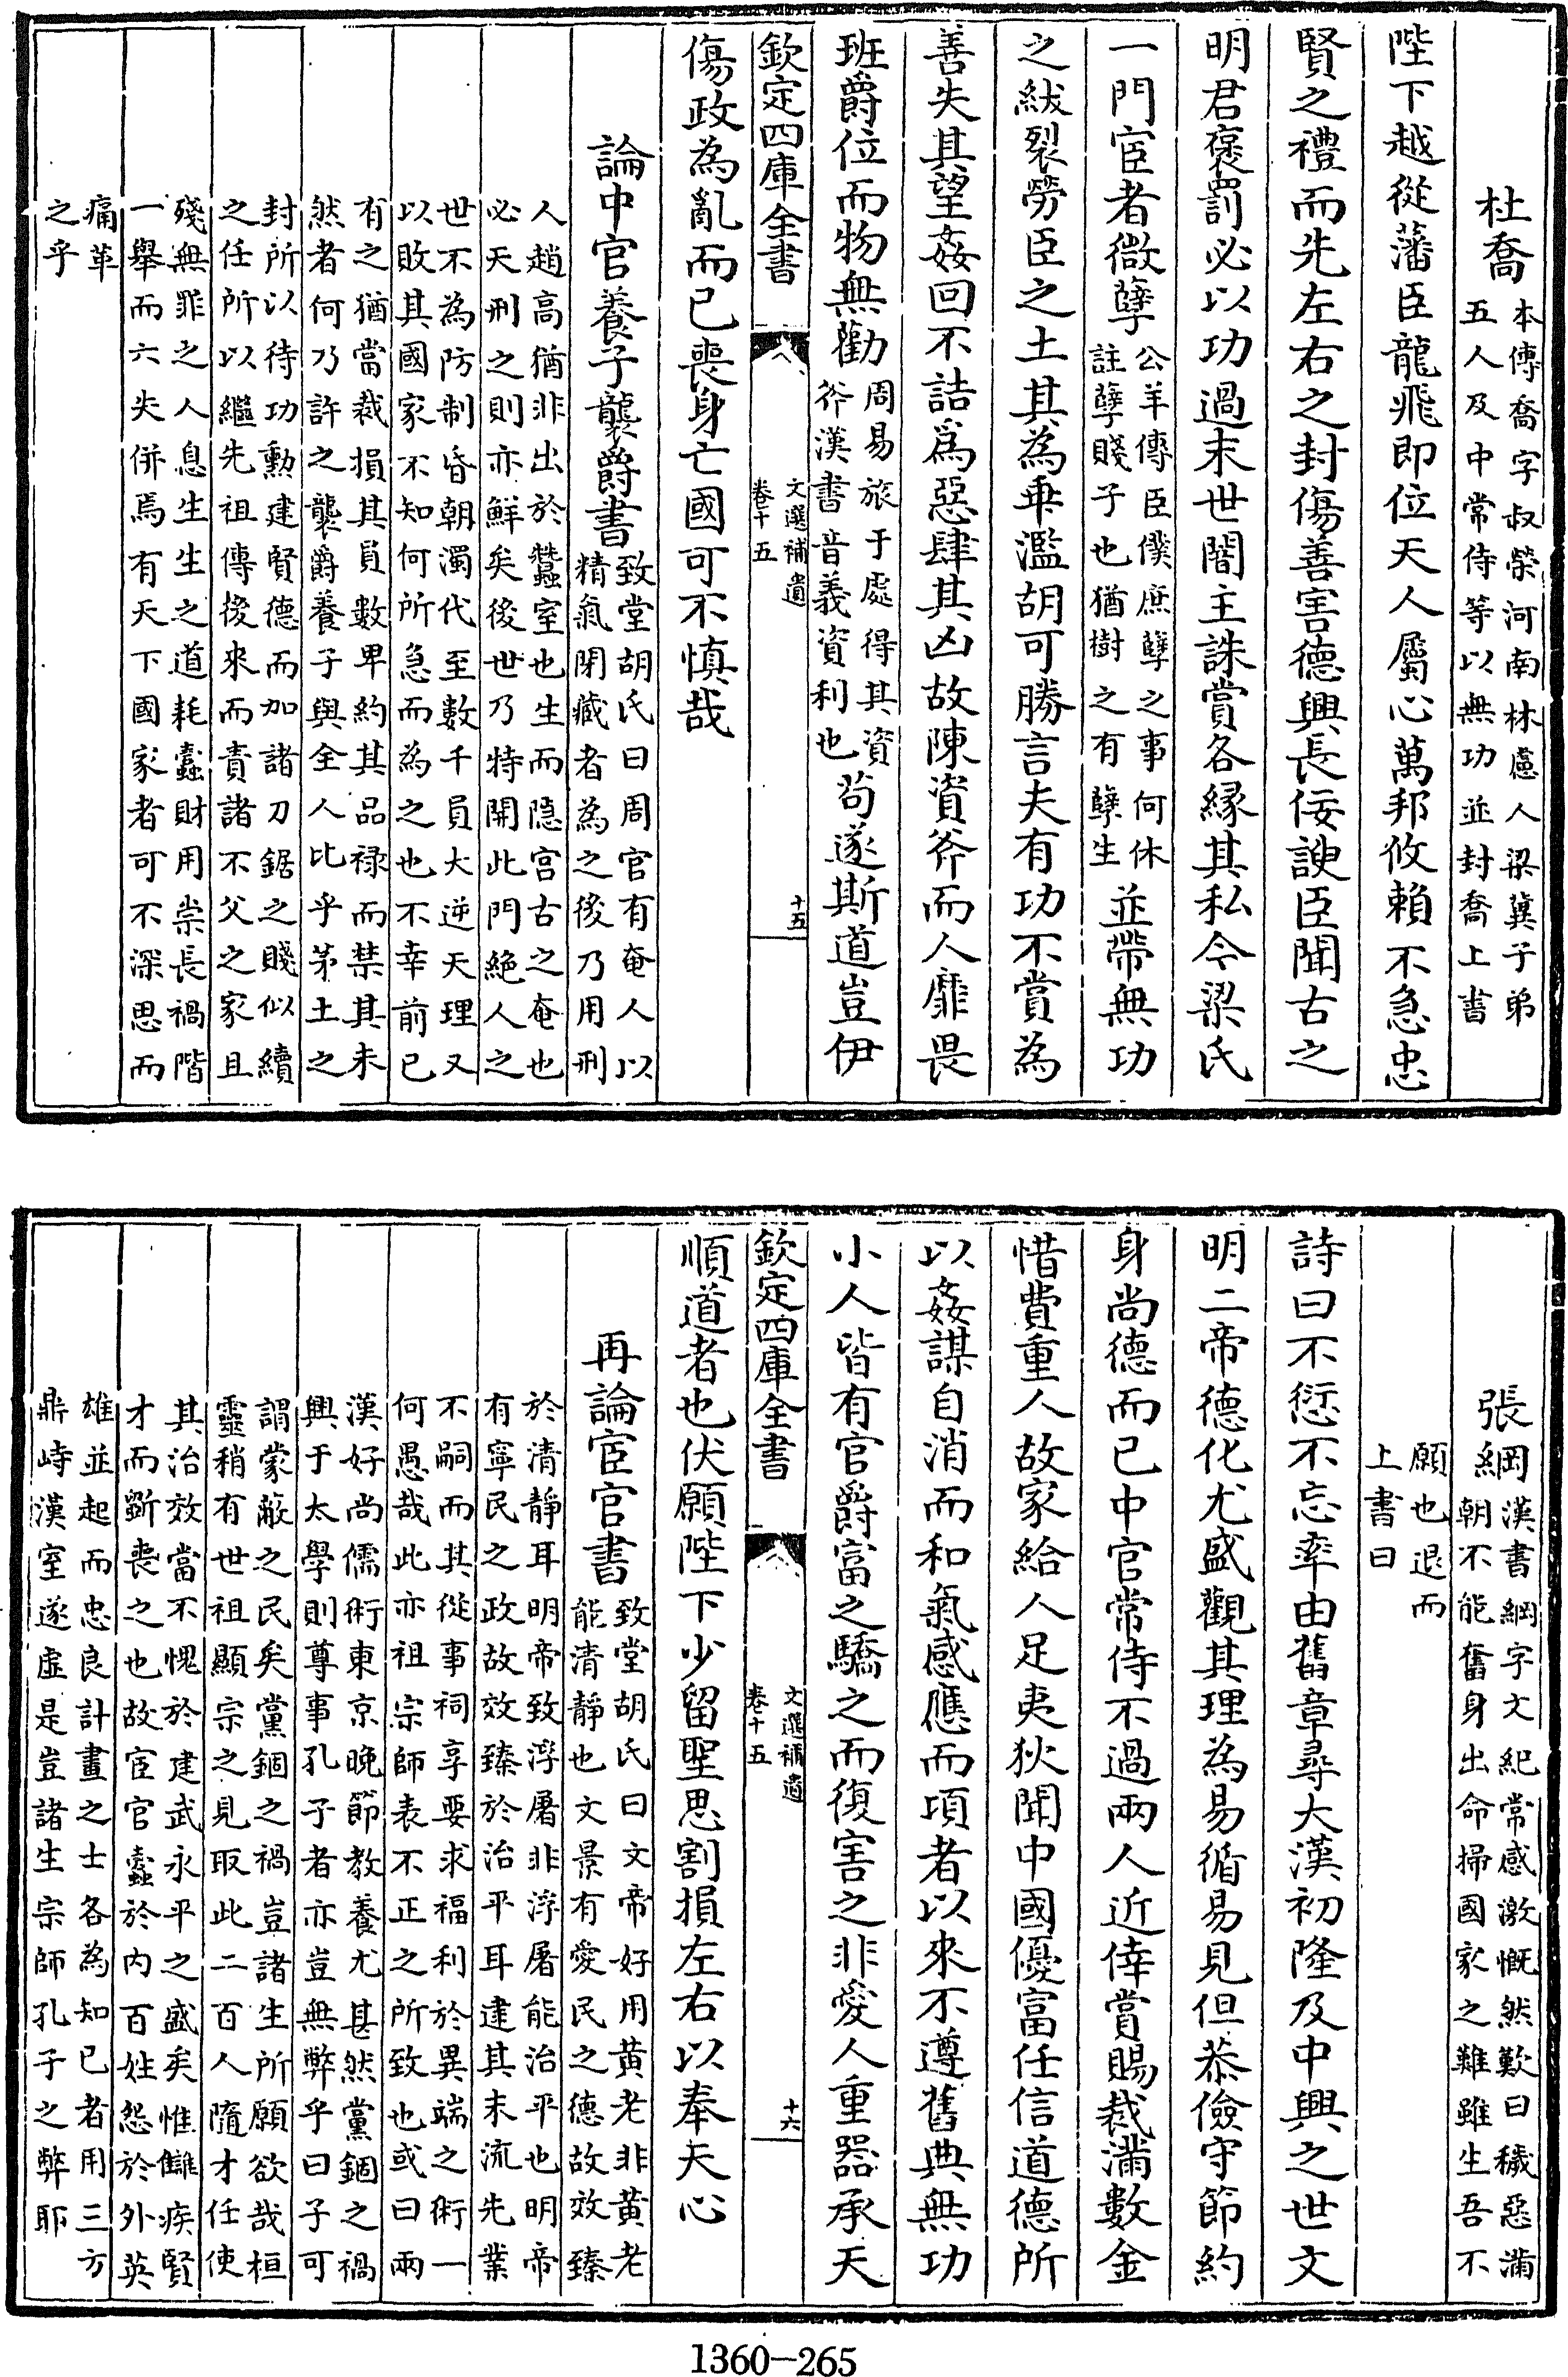 杜喬本傳喬字叔榮河南林慮人梁冀子弟
五人及中常侍等以無功並封喬上書
陛下越從藩臣龍飛即位天人屬心萬邦攸賴不急忠
賢之禮而先左右之封傷善害德興長佞諛臣聞古之
明君褒罰必以功過末世闇主誅賞各緣其私今梁氏
一門宦者微孽公羊傳臣僕庶孽之事何休
註孽賤子也猶樹之有孽生並帶無功
之紱裂勞臣之土其為乖濫胡可勝言夫有功不賞為
善失其望姦回不詰爲惡肆其凶故陳資斧而人靡畏
班爵位而物無勸周易旅于處得其資
斧漢書音義資利也茍遂斯道豈伊
欽定四庫全書
文選補遺
卷十五
十五
傷政為亂而已喪身亡國可不慎哉
論中官養子襲爵書致堂胡氏曰周官有奄人以
精氣閉藏者為之後乃用刑
人趙高猶非出於蠶室也生而隠宫古之奄也
必天刑之則亦鮮矣後世乃特開此門絶人之
世不為防制昏朝濁代至數千員大逆天理又
以敗其國家不知何所急而為之也不幸前已
有之猶當裁損其員數卑約其品禄而禁其未
然者何乃許之襲爵養子與全人比乎茅土之
封所以待功勲建賢德而加諸刀鋸之賤似續
之任所以繼先祖傳後來而責諸不父之家且
殘無罪之人息生生之道耗蠧財用崇長禍階
一舉而六失併焉有天下國家者可不深思而
痛革
之乎
張綱漢書綱字文紀常感激慨然歎曰穢惡滿
朝不能奮身出命掃國家之難雖生吾不
願也退而
上書曰
詩曰不愆不忘率由舊章尋大漢初隆及中興之世文
明二帝德化尤盛觀其理為易循易見但恭儉守節約
身尚德而已中官常侍不過兩人近倖賞賜裁滿數金
惜費重人故家給人足夷狄聞中國優富任信道德所
以姦謀自消而和氣感應而項者以來不遵舊典無功
小人皆有官爵富之驕之而復害之非愛人重器承天
欽定四庫全書
文選補遺
卷十五
十六
順道者也伏願陛下少留聖思割損左右以奉天心
再論宦官書致堂胡氏曰文帝好用黄老非黄老
能清靜也文景有愛民之德故效臻
於清靜耳明帝致浮屠非浮屠能治平也明帝
有寧民之政故效臻於治平耳逮其末流先業
不嗣而其從事祠享要求福利於異端之術一
何愚哉此亦祖宗師表不正之所致也或曰兩
漢好尚儒術東京晚節教養尤甚然黨錮之禍
興于太學則尊事孔子者亦豈無弊乎曰子可
謂蒙蔽之民矣黨錮之禍豈諸生所願欲哉桓
靈稍有世祖顯宗之見取此二百人隨才任使
其治效當不愧於建武永平之盛矣惟讎疾賢
才而斵喪之也故宦官蠧於内百姓怨於外英
雄並起而忠良計畫之士各為知已者用三方
鼎峙漢室遂虚是豈諸生宗師孔子之弊耶
1360—265